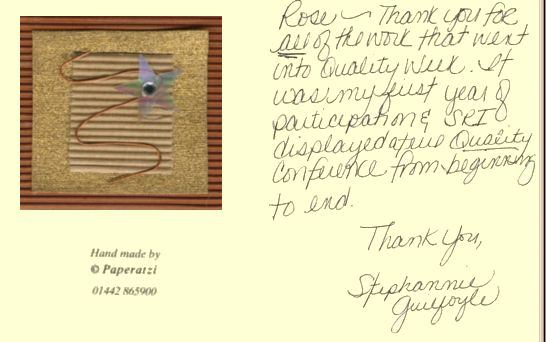 Hand made by
© Paperatzi
01442 865900
Rose ~ Thank you for
all of the work that went
into Quality Week. It
was my first year of
participation & SRI
displayed a true Quality
Conference from beginning
to end.
Thank You,
Stephannie
Guilfoyle